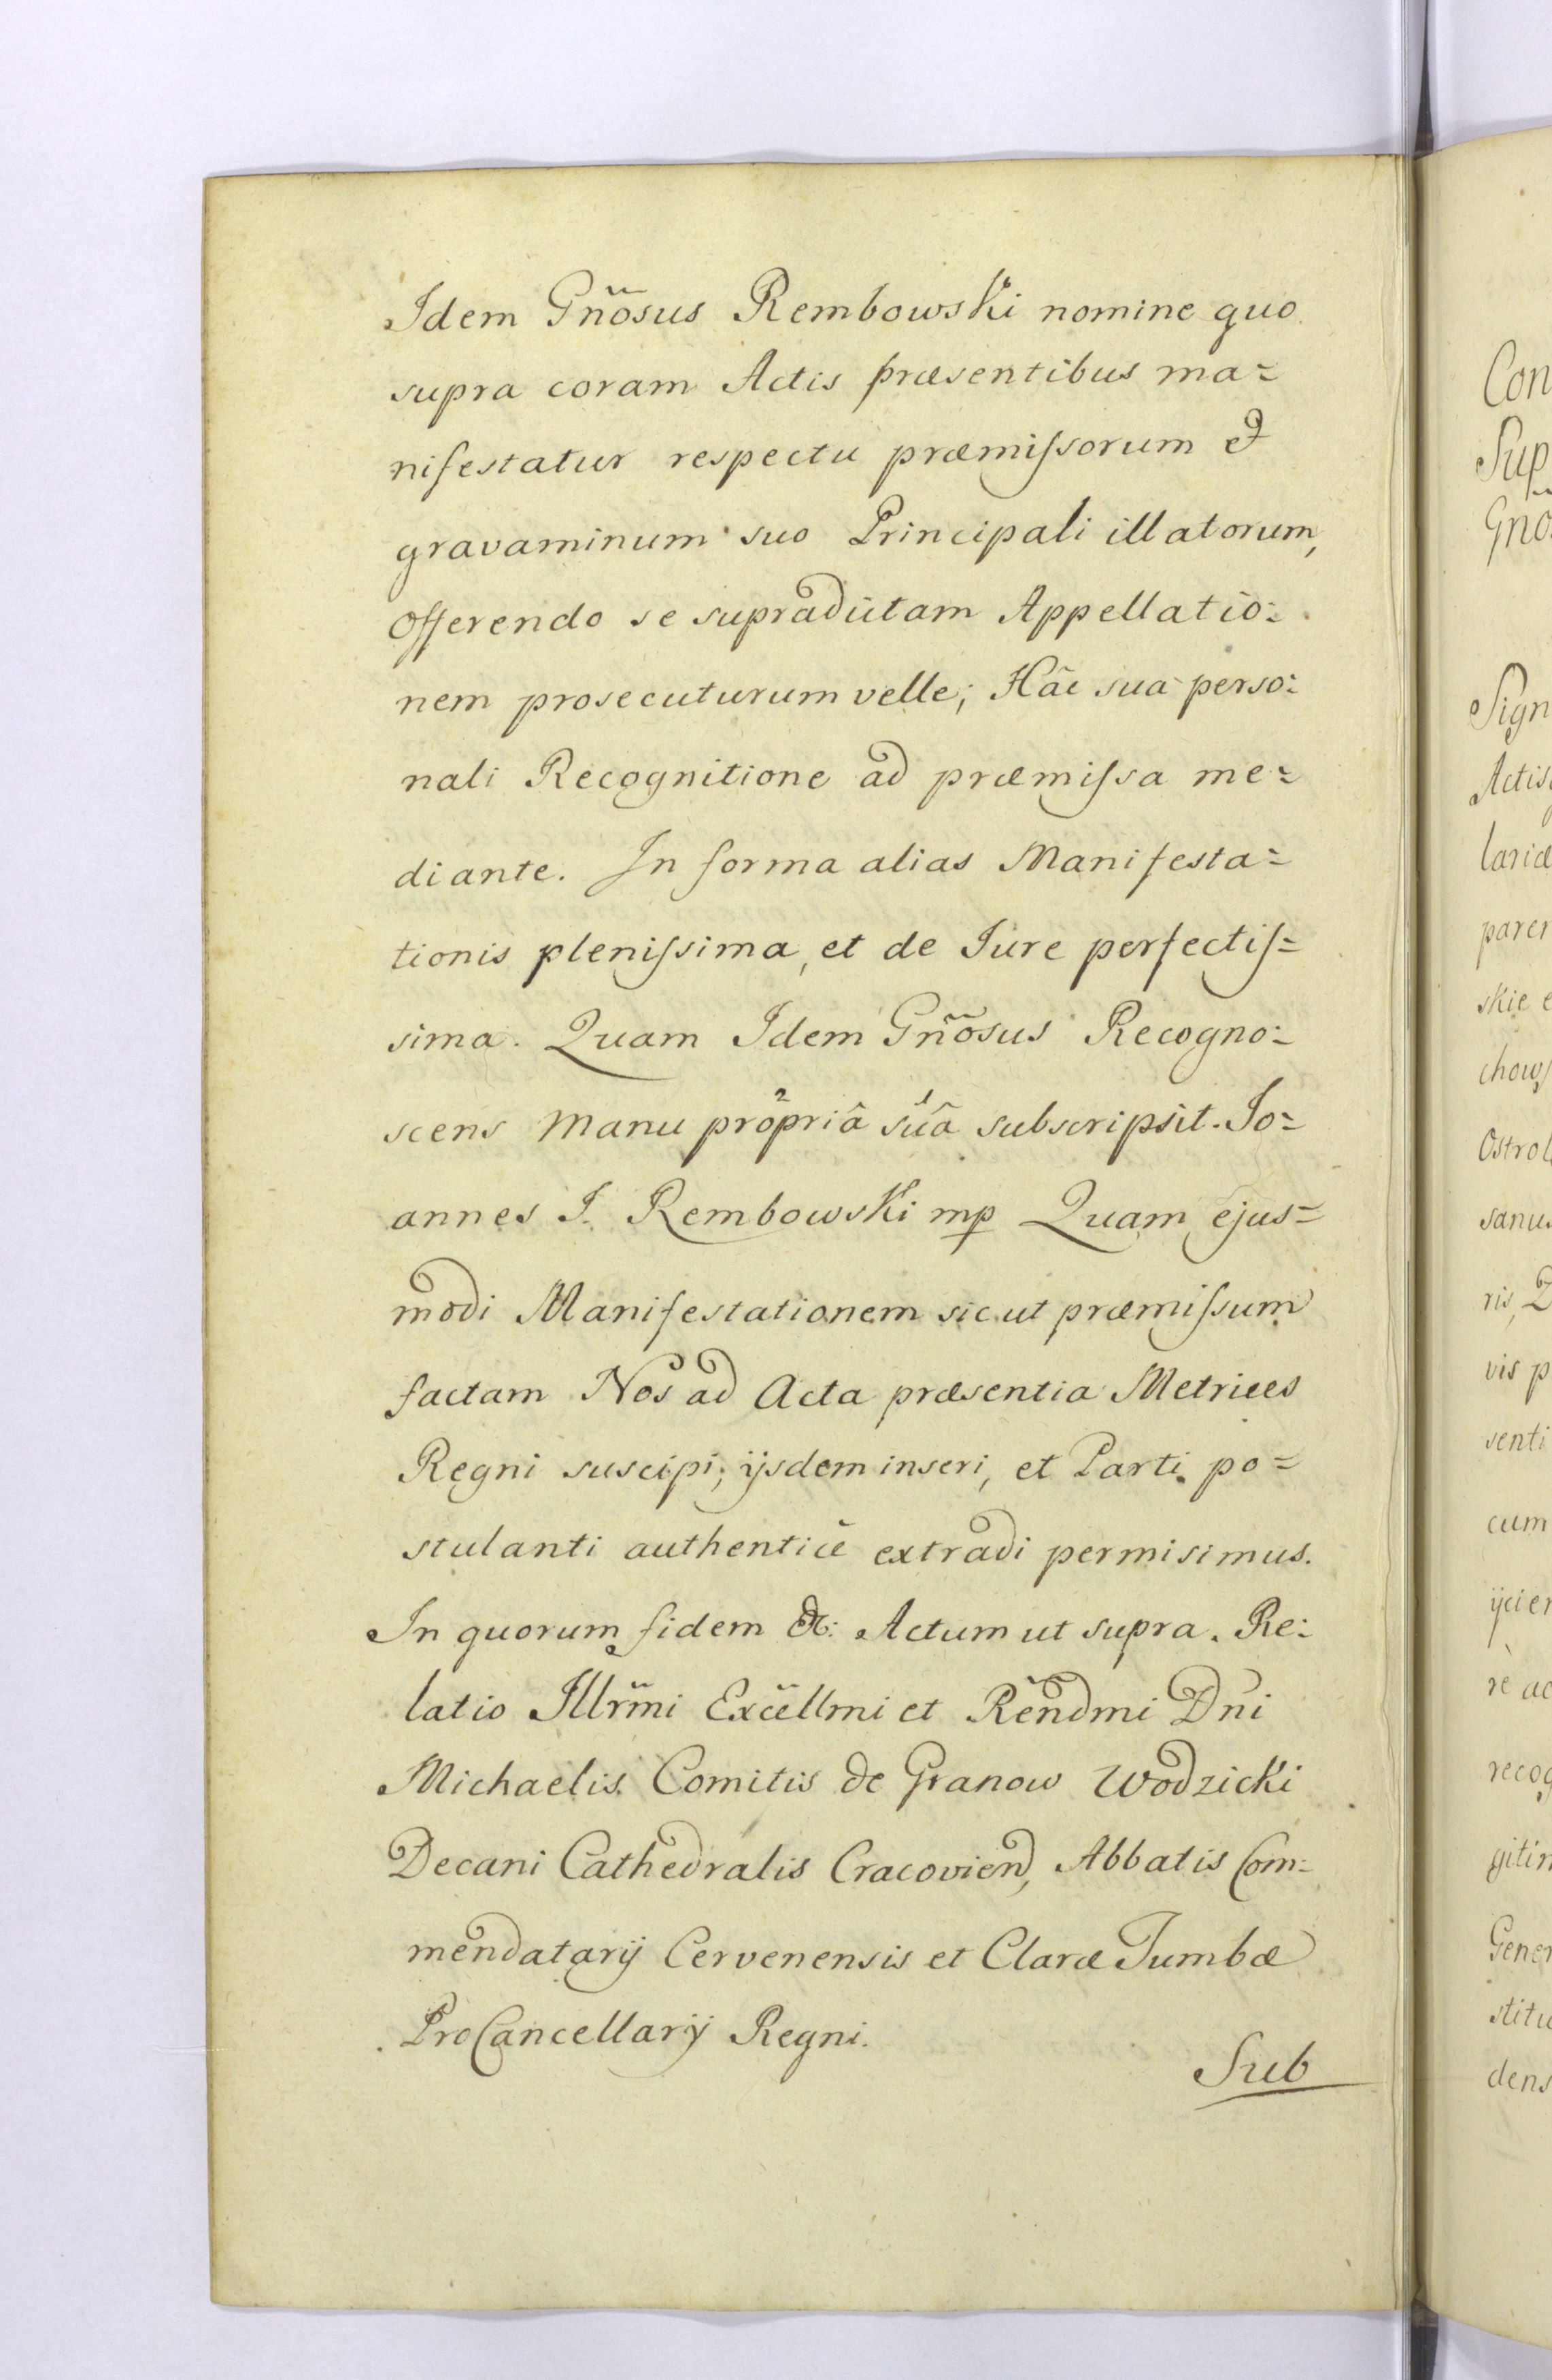 Idem Gñosus Rembowski nomine quo
supra coram Actis præsentibus ma=
nifestatur respectu præmiſsorum et
gravaminum suo Principali illatorum,
Offerendo se supradictam Appellatio=
nem prosecuturum velle; Hâc sua perso=
nali Recognitione ad præmiſsa me=
diante. In forma alias Manifesta=
tionis pleniſsima, et de Iure perfectiſ=
sima. Quam Idem Gñosus Recogno=
scens Manu propriâ suâ subscripsit. Io=
annes I. Rembowski mp Quam ejus=
modi Manifestationem sicut præmiſsum
factam Nos ad Acta præsentia Metrices
Regni suscipi; ijsdem inseri, et Parti po=
stulanti authenticè extradi permisimus.
In quorum fidem &c: Actum ut supra. Re=
latio Illr̃mi Excellmi et Rendmi Dni
Michaelis Comitis de Granow Wodzicki
Decani Cathedralis Cracovien, Abbatis Com=
mendatarij Cervenensis et Claræ Tumbæ
ProCancellarij Regni.
Sub
Con
Sup
Gño
Sign
Actis
lariæ
parer
skie e
chowſ
Ostrol
sanus
ris, Q
vis p
senti
cum
ijcier
rè ac
recog
gitim
Gener
stitu
dens